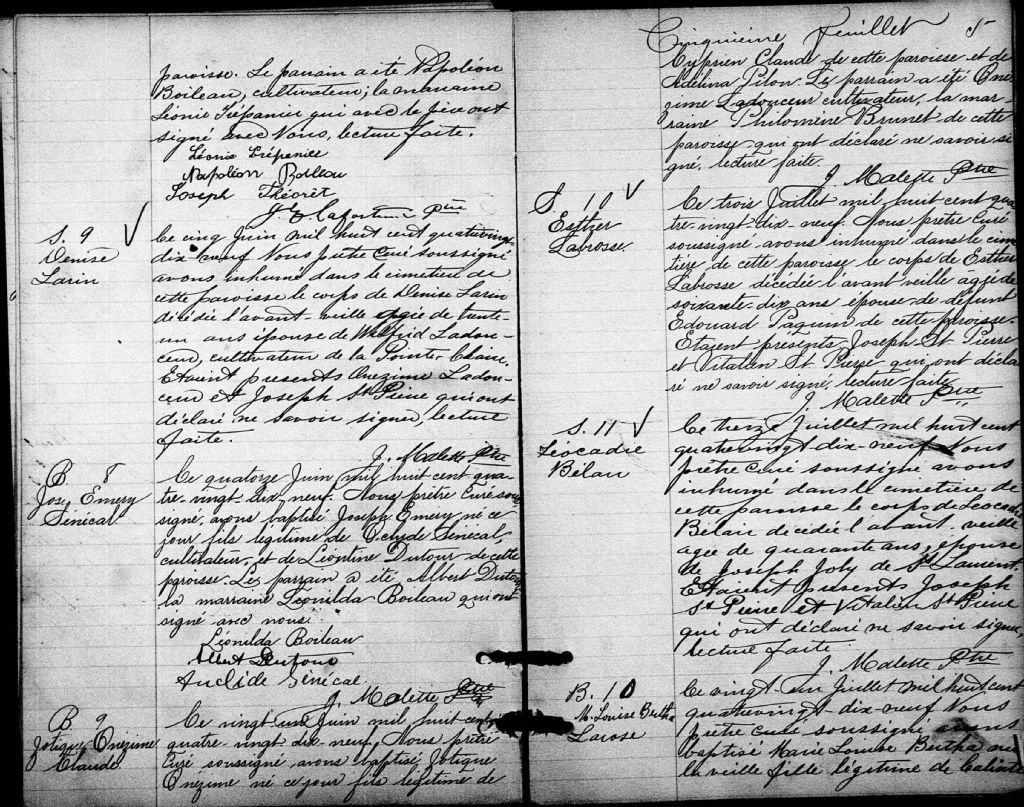 paroisse. Le parrain a été Napoléon
Boileau, cultivateur; la marraine
Léonie Trépanier qui avec le père ont
signé avec Nous, lecture faite.
Léonie Trépanier
Napoléon Boileau
Joseph Théoret
J E Laportune Ptre
S. 9
Denise
Larin
Ce cinq Juin mil huit cent quatrevingt
dix-neuf Nous prêtre Curé soussigné
avons inhumé dans le cimetière de
cette paroisse le corps de Denise Larin
décédée l'avant-veille agée de trente
un ans épouse de Wilfrid Ladou-
ceur, cultivateur de la Pointe-Claire.
Etaient presents Onezime Ladou-
ceur et Joseph St Pierre qui ont
déclaré ne savoir signer, lecture
faite.
J. Malette Ptre
B 8
Jos. Emery
Sénécal
Ce quatorze Juin mil huit cent qua-
tre-vingt dix neuf. Nous prêtre Curé sous-
signé, avons baptisé Joseph Emery né ce
jour fils légitime de Sénécal,
cultivateur, et de Léontine Dutour de cette
paroisse. Le parrain a été Albert Dutour
la marraine Léonilda Boileau qui ont
signé avec nous.
Léonilda Boileau
Albert Dutour
Sénécal
J. Malette Ptre
B 9
Jotique Onézime
Claude
Ce vingt un Juin mil huit cent
quatre-vingt dix neuf, Nous prêtre
Curé soussigné avons baptisé Jotique
Onézime né ce jour fils légitime de
Cinquième feuillet 5
Cyprien Claude de cette paroisse et de
Adélina Pilon. Le parrain a été Oné-
zime Ladouceur cultivateur, la mar-
raine Philomène Brunet de cette
paroisse qui ont déclaré ne savoir si-
gné, lecture faite.
J. Malette Ptre
S. 10
Esther
Labrosse
Ce trois Juillet mil huit cent qua-
tre-vingt-dix-neuf. Nous prêtre Curé
soussigné avons inhumé dans le cime
tière de cette paroisse le corps de Esther
Labrosse décédée l'avant veille agée de
soixante-dix ans épouse de défunt
Edouard Paquin de cette paroisse.
Etaient présents Joseph St Pierre
et Vitalien St Pierre qui ont décla
ré ne savoir signé, lecture faite
J. Malette Ptre
S. 11
Léocadie
Bélair
Ce treize Juillet mil huit cent
quatrevingt dix-neuf Nous
prêtre curé soussigné avons
inhumé dans le cimetière de
cette paroisse le corps de Leocadie
Bélair decédée l'avant-veille
agée de quarante ans, épouse
de Joseph Joly de St Laurent.
Etaient présents Joseph
St Pierre et Vitalien St Pierre
qui ont déclaré ne savoir signer,
lecture faite.
J. Malette Ptre
B. 10
M. Louise Bertha
Larose
Ce vingt un Juillet mil huit cent
quatrevingt-dix-neuf Nous
prêtre curé soussigné avons
baptisé Marie Louise Bertha née
la veille fille légitime de Calixte